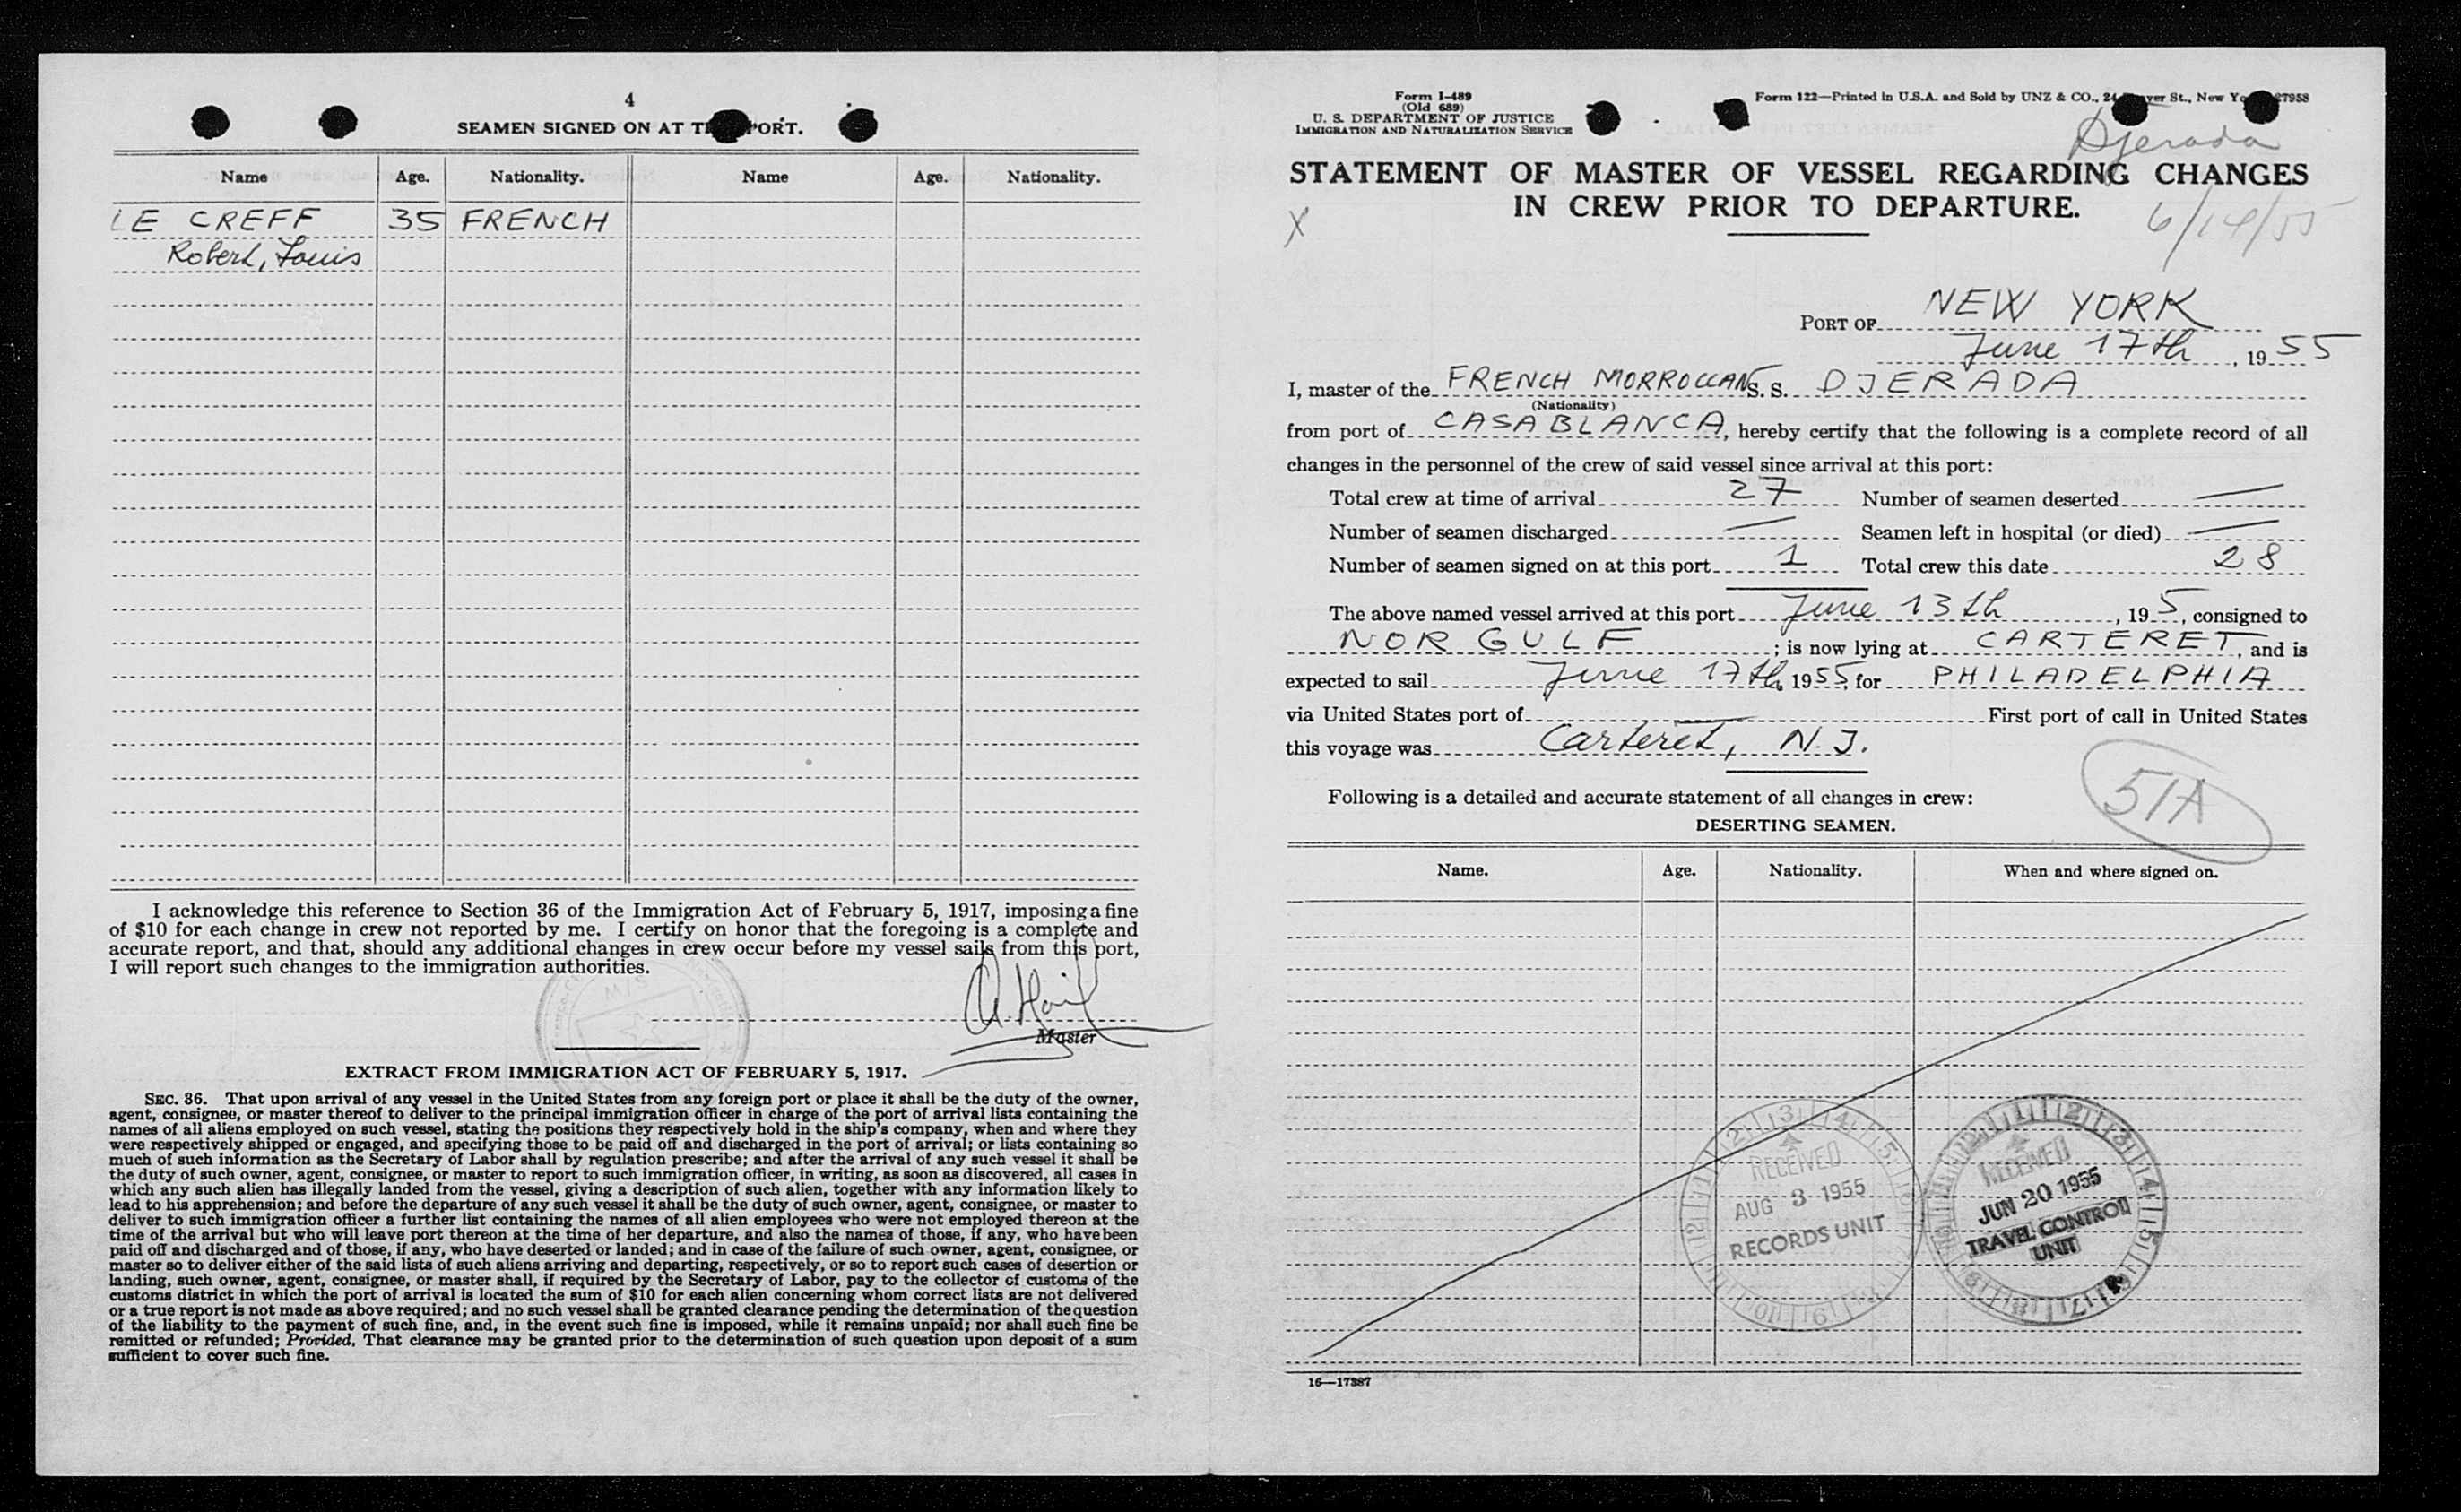 4
SEAMEN SIGNED ON AT PORT.
Name Age. Nationality. Name Age. Nationality.
LE CREFF 35 FRENCH
Robert, Louis
I acknowledge this reference to Section 36 of the Immigration Act of February 5, 1917, imposing a fine
of $10 for each change in crew not reported by me. I certify on honor that the foregoing is a complete and
accurate report, and that, should any additional changes in crew occur before my vessel sails from this port,
I will report such changes to the immigration authorities.
M/S
Master
EXTRACT FROM IMMIGRATION ACT OF FEBRUARY 5, 1917.
SEC. 36. That upon arrival of any vessel in the United States from any foreign port or place it shall be the duty of the owner,
agent, consignee, or master thereof to deliver to the principal immigration officer in charge of the port of arrival lists containing the
names of all aliens employed on such vessel, stating the positions they respectively hold in the ship's company, when and where they
were respectively shipped or engaged, and specifying those to be paid off and discharged in the port of arrival; or lists containing so
much of such information as the Secretary of Labor shall by regulation prescribe; and after the arrival of any such vessel it shall be
the duty of such owner, agent, consignee, or master to report to such immigration officer, in writing, as soon as discovered, all cases in
which any such alien has illegally landed from the vessel, giving a description of such alien, together with any information likely to
lead to his apprehension; and before the departure of any such vessel it shall be the duty of such owner, agent, consignee, or master to
deliver to such immigration officer a further list containing the names of all alien employees who were not employed thereon at the
time of the arrival but who will leave port thereon at the time of her departure, and also the names of those, if any, who have been
paid off and discharged and of those, if any, who have deserted or landed; and in case of the failure of such owner, agent, consignee, or
master so to deliver either of the said lists of such aliens arriving and departing, respectively, or so to report such cases of desertion or
landing, such owner, agent, consignee, or master shall, if required by the Secretary of Labor, pay to the collector of customs of the
customs district in which the port of arrival is located the sum of $10 for each alien concerning whom correct lists are not delivered
or a true report is not made as above required; and no such vessel shall be granted clearance pending the determination of the question
of the liability to the payment of such fine, and, in the event such fine is imposed, while it remains unpaid; nor shall such fine be
remitted or refunded; Provided, That clearance may be granted prior to the determination of such question upon deposit of a sum
sufficient to cover such fine.
Form I-489
(Old 689)
U. S. DEPARTMENT OF JUSTICE
IMMIGRATION AND NATURALIZATION SERVICE
Form 122—Printed in U.S.A. and Sold by UNZ & CO., 24 St., New 27958
Djerada
STATEMENT OF MASTER OF VESSEL REGARDING CHANGES
IN CREW PRIOR TO DEPARTURE.
X
6/14/55
PORT OF NEW YORK
June 17th, 1955
I, master of the FRENCH MORROCCAN S. S. DJERADA
(Nationality)
from port of CASABLANCA, hereby certify that the following is a complete record of all
changes in the personnel of the crew of said vessel since arrival at this port:
Total crew at time of arrival 27 Number of seamen deserted —
Number of seamen discharged — Seamen left in hospital (or died) —
Number of seamen signed on at this port 1 Total crew this date 28
The above named vessel arrived at this port June 13th, 195, consigned to
NOR GULF; is now lying at CARTERET, and is
expected to sail June 17th, 1955, for PHILADELPHIA
via United States port of — First port of call in United States
this voyage was Carteret, N.J.
51A
Following is a detailed and accurate statement of all changes in crew:
DESERTING SEAMEN.
Name. Age. Nationality. When and where signed on.
RECEIVED
AUG 3 1955
RECORDS UNIT
RECEIVED
JUN 20 1955
TRAVEL CONTROL
UNIT
16—17387